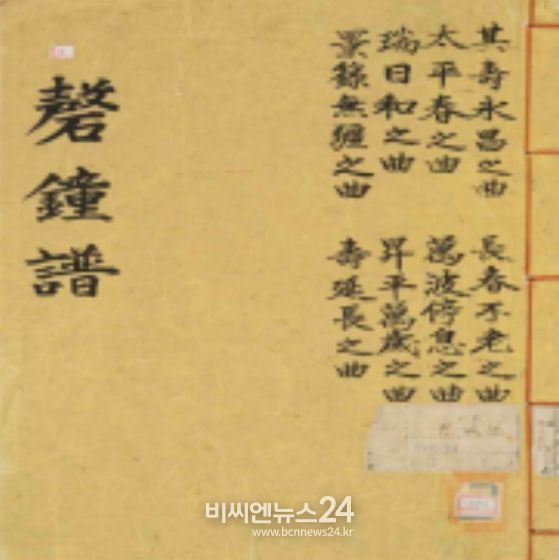 其壽永昌之曲 長春不老之曲
太平春之曲 萬波停息之曲
瑞日和之曲 昇平萬歲之曲
景籙無疆之曲 壽延長之曲
磬鐘譜
비씨엔뉴스24
www.bcnnews24.kr